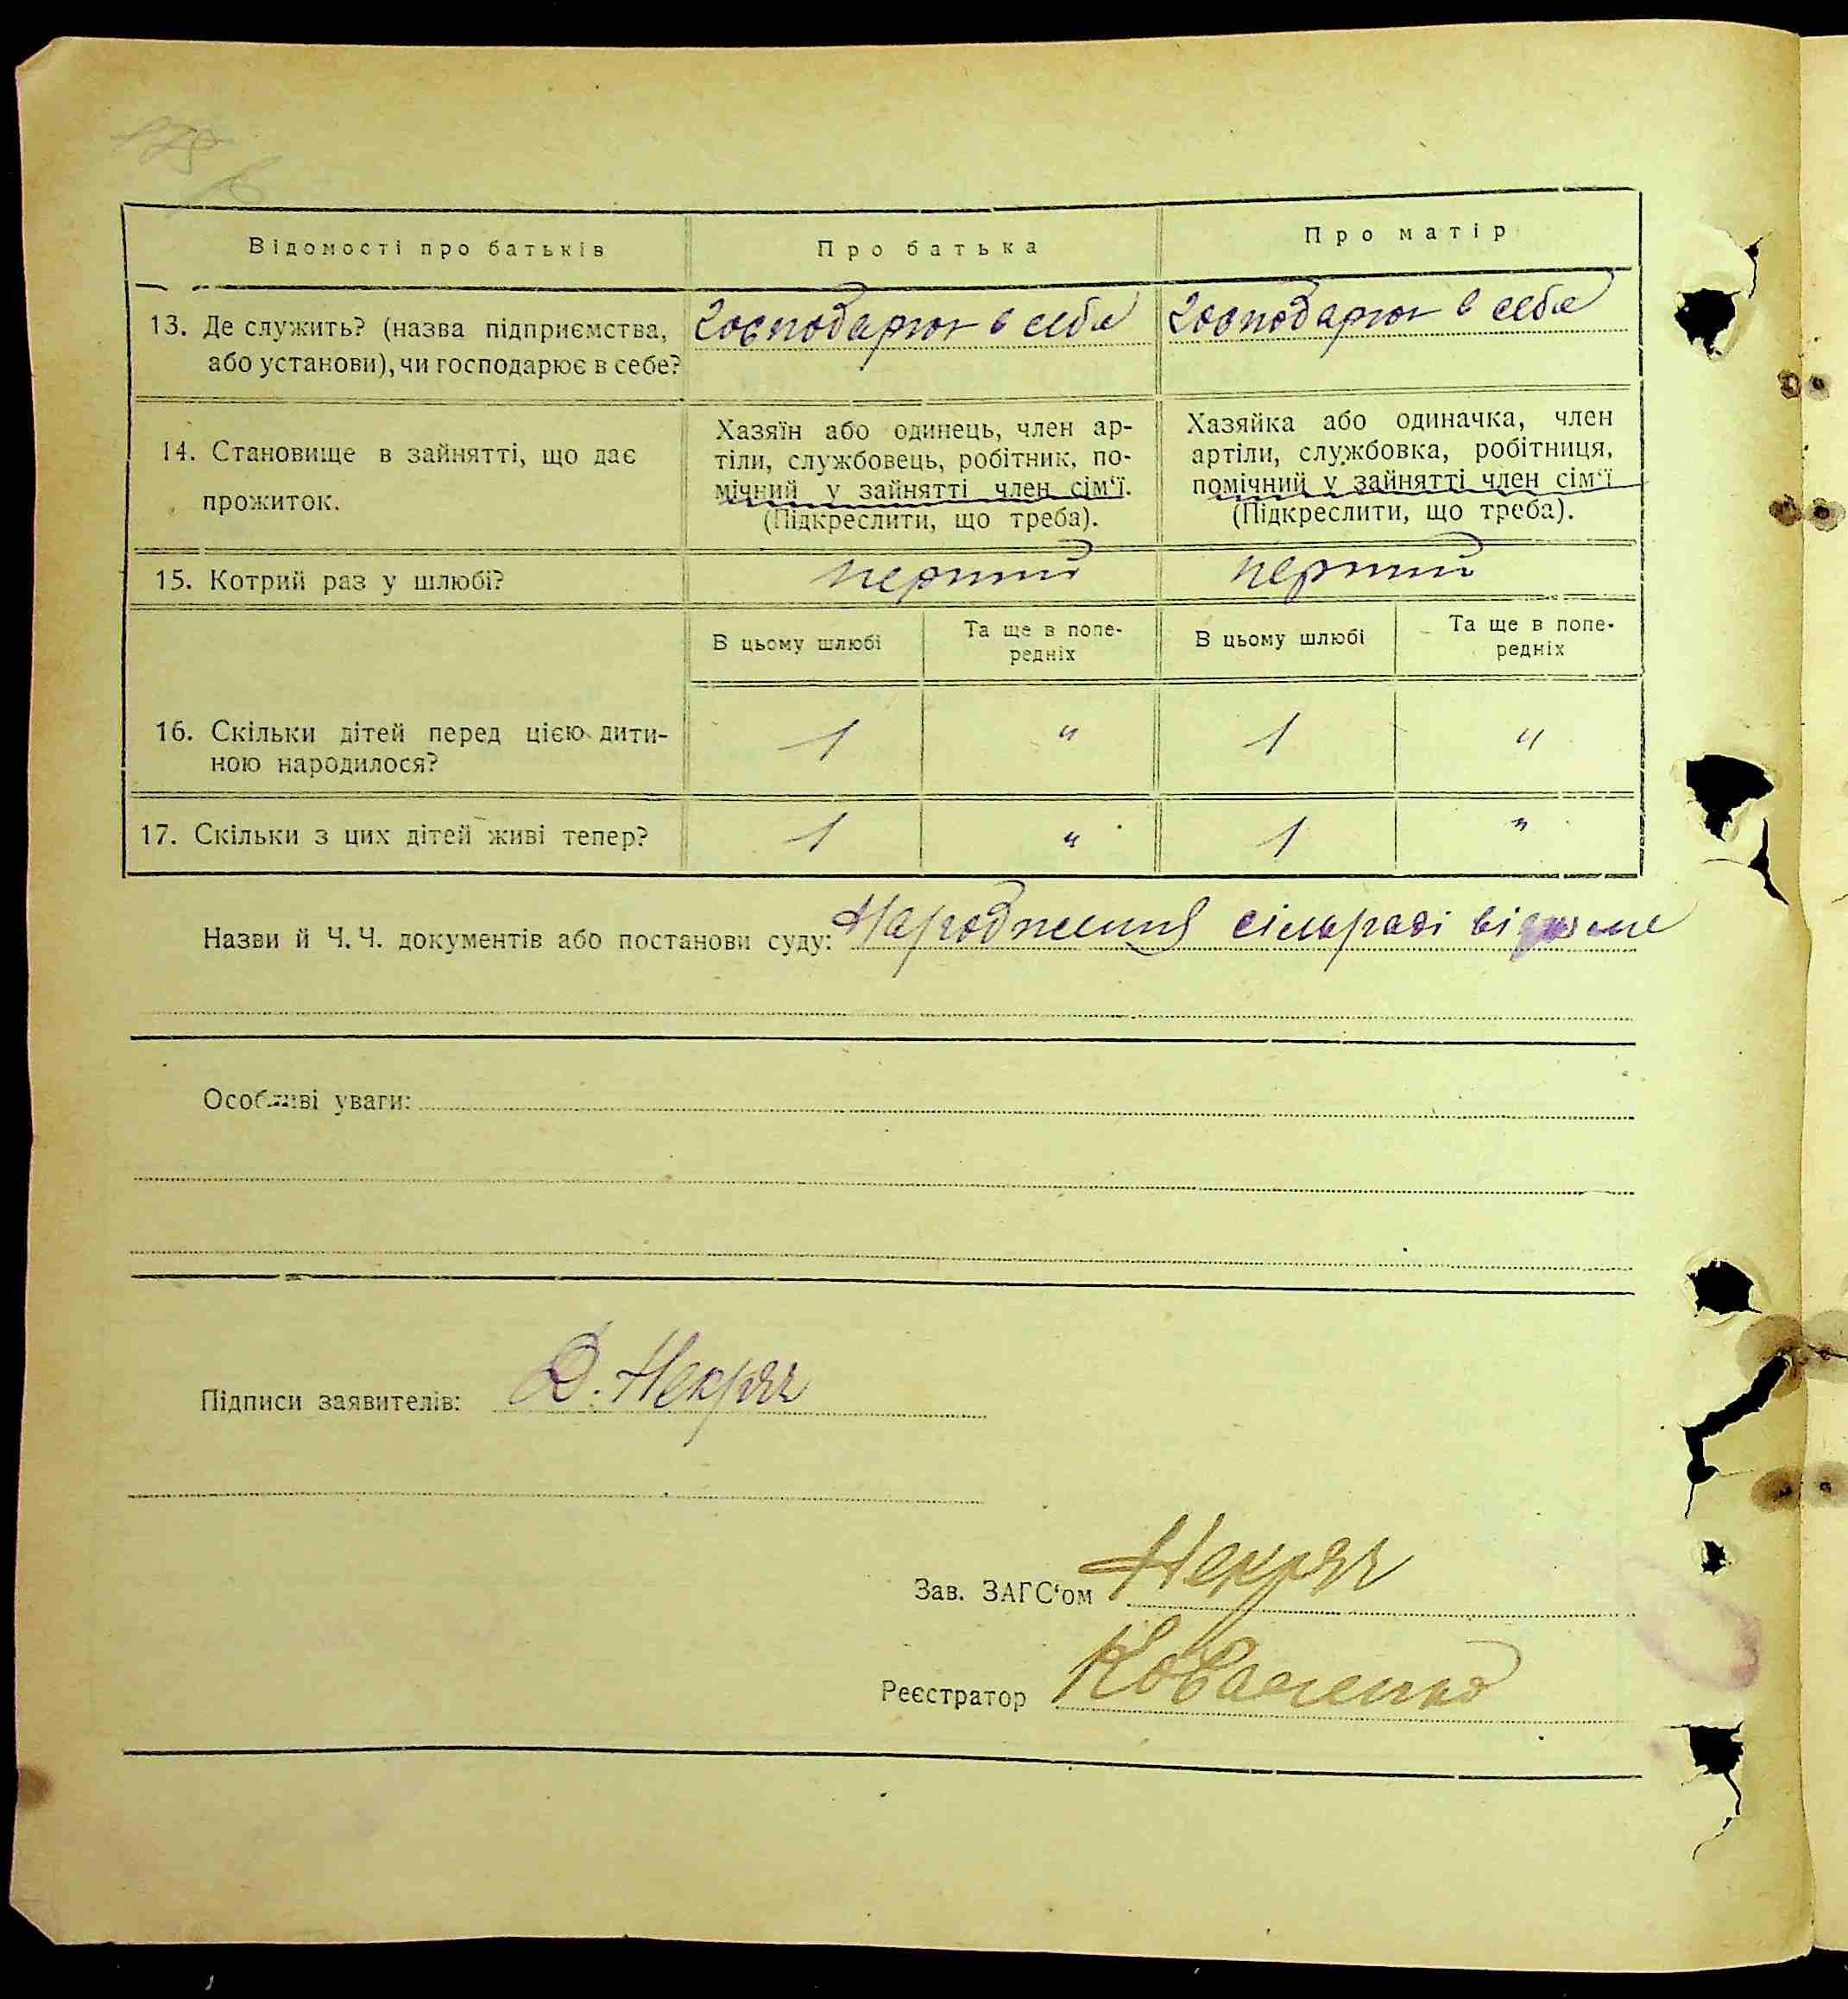 Відомості про батьків
Про батька
Про матір
13. Де служить? (назва підприємства,
або установи), чи господарює в себе?
господарює в себе
господарює в себе
14. Становище в зайнятті, що дає
прожиток.
Хазяїн або одинець, член ар-
тіли, службовець, робітник, по-
мічний у зайнятті член сім'ї.
(Підкреслити, що треба).
Хазяйка або одиначка, член
артіли, службовка, робітниця,
помічний у зайнятті член сім'ї
(Підкреслити, що треба).
15. Котрий раз у шлюбі?
перший
перший
В цьому шлюбі
Та ще в попе-
редніх
В цьому шлюбі
Та ще в попе-
редніх
16. Скільки дітей перед цією дити-
ною народилося?
1 " 1 "
17. Скільки з цих дітей живі тепер?
1 " 1 "
Назви й Ч. Ч. документів або постанови суду: Народження сільраді відоме
Особливі уваги:
Підписи заявителів: Д. Некряч
Зав. ЗАГС'ом Некряч
Реєстратор Коваленко